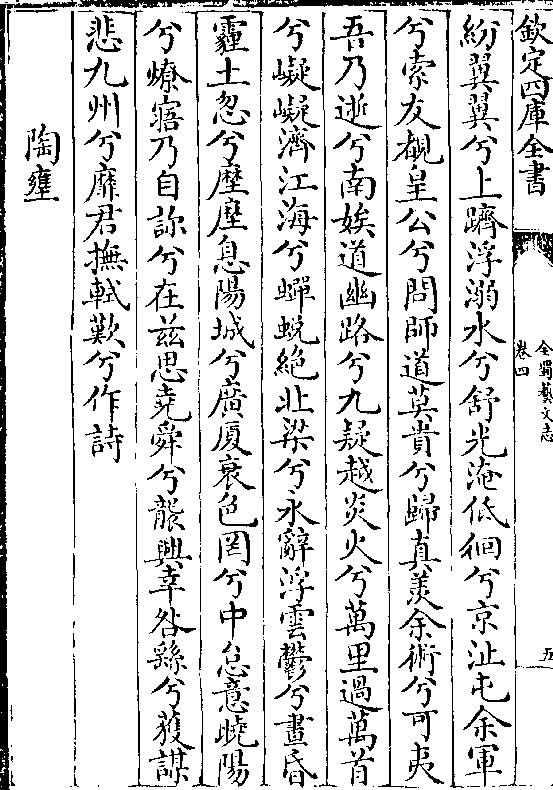 欽定四庫全書
全蜀藝文志
卷四
五
紛翼翼兮上躋浮溺水兮舒光淹低徊兮京沚屯余軍
兮索友覩皇公兮問師道莫貴兮歸真羡余術兮可夷
吾乃逝兮南娭道幽路兮九疑越炎火兮萬里過萬首
兮嶷嶷濟江海兮蟬蜕絶北梁兮永辭浮雲鬱兮晝昏
霾土忽兮塺塺息陽城兮廣厦衰色罔兮中怠意曉陽
兮燎寤乃自診兮在兹思堯舜兮襲興幸咎繇兮獲謀
悲九州兮靡君撫軾歎兮作詩
陶壅